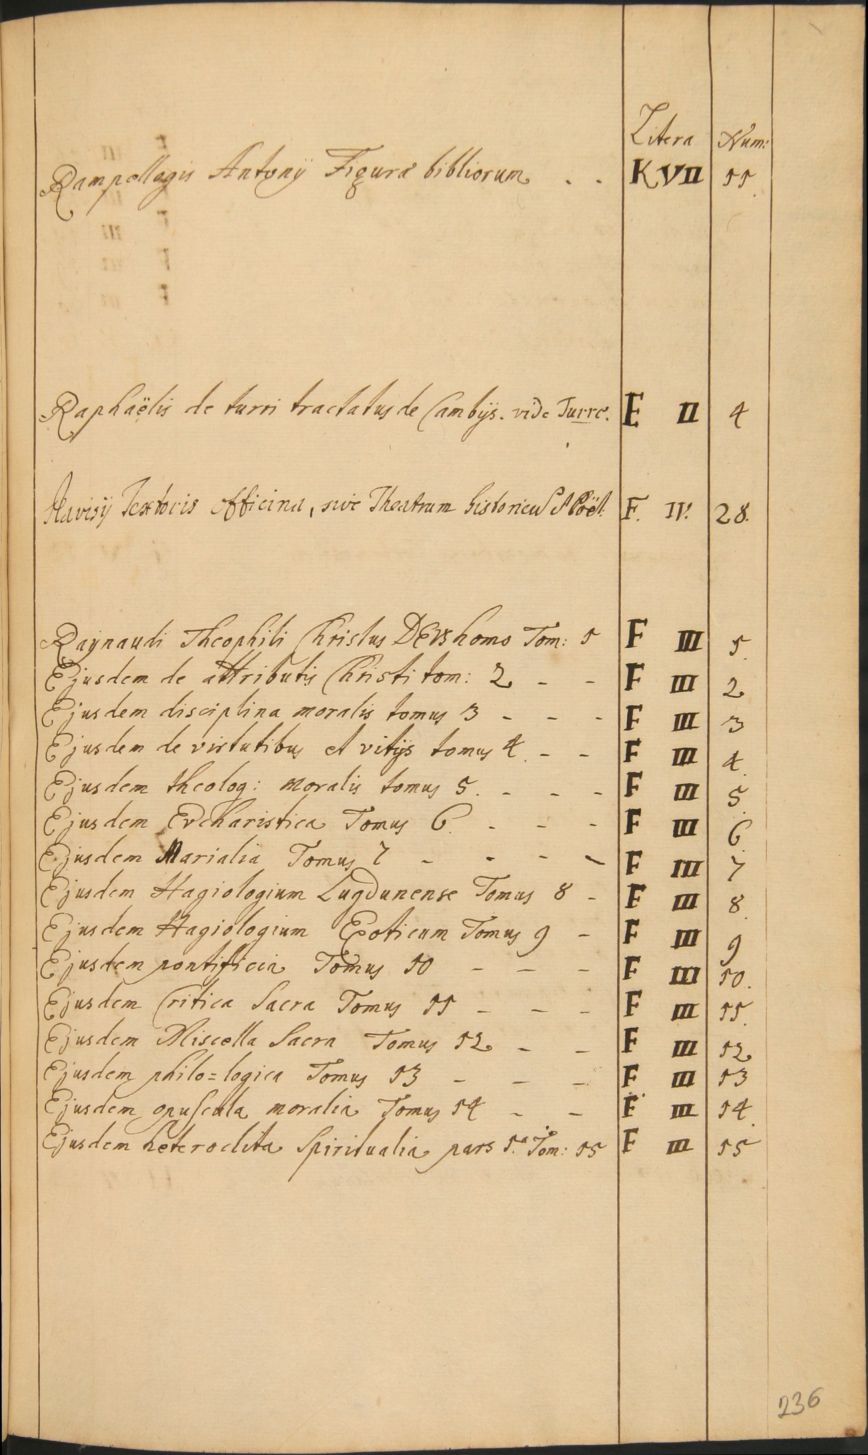 Litera Num:
Rampellagis Antonij Figuræ bibliorum . . K VII 11.
Raphaëlis de turri tractatus de Cambijs. vide Turre. E II 4
Ravisij Textoris officina, sive Theatrum historicū et Poët. F. IV. 28.
Raynaudi Theophili Christus DEVs homo Tom: 1 F III 1.
Ejusdem de attributis Christi tom: 2 - - F III 2
Ejusdem disciplina moralis tomus 3 - - - F III 3
Ejusdem de virtutibus et vitijs tomus 4. - - F III 4.
Ejusdem theolog: moralis tomus 5. - - - F III 5.
Ejusdem Evcharistica Tomus 6. - - - F III 6.
Ejusdem Marialia Tomus 7 - - - - F III 7
Ejusdem Hagiologium Lugdunense Tomus 8 - F III 8.
Ejusdem Hagiologium Exoticum Tomus 9 - F III 9
Ejusdem pontificia Tomus 10 - - - F III 10.
Ejusdem Critica Sacra Tomus 11 - - - F III 11.
Ejusdem Miscella Sacra Tomus 12 - - F III 12
Ejusdem philo=logica Tomus 13 - - - F III 13
Ejusdem opuscula moralia Tomus 14 - - F III 14.
Ejusdem heteroclita Spiritualia pars 1.a Tom: 15 F III 15
236